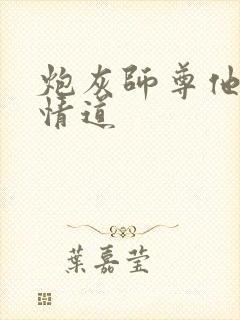 炮灰師尊他
情道
葉嘉瑩